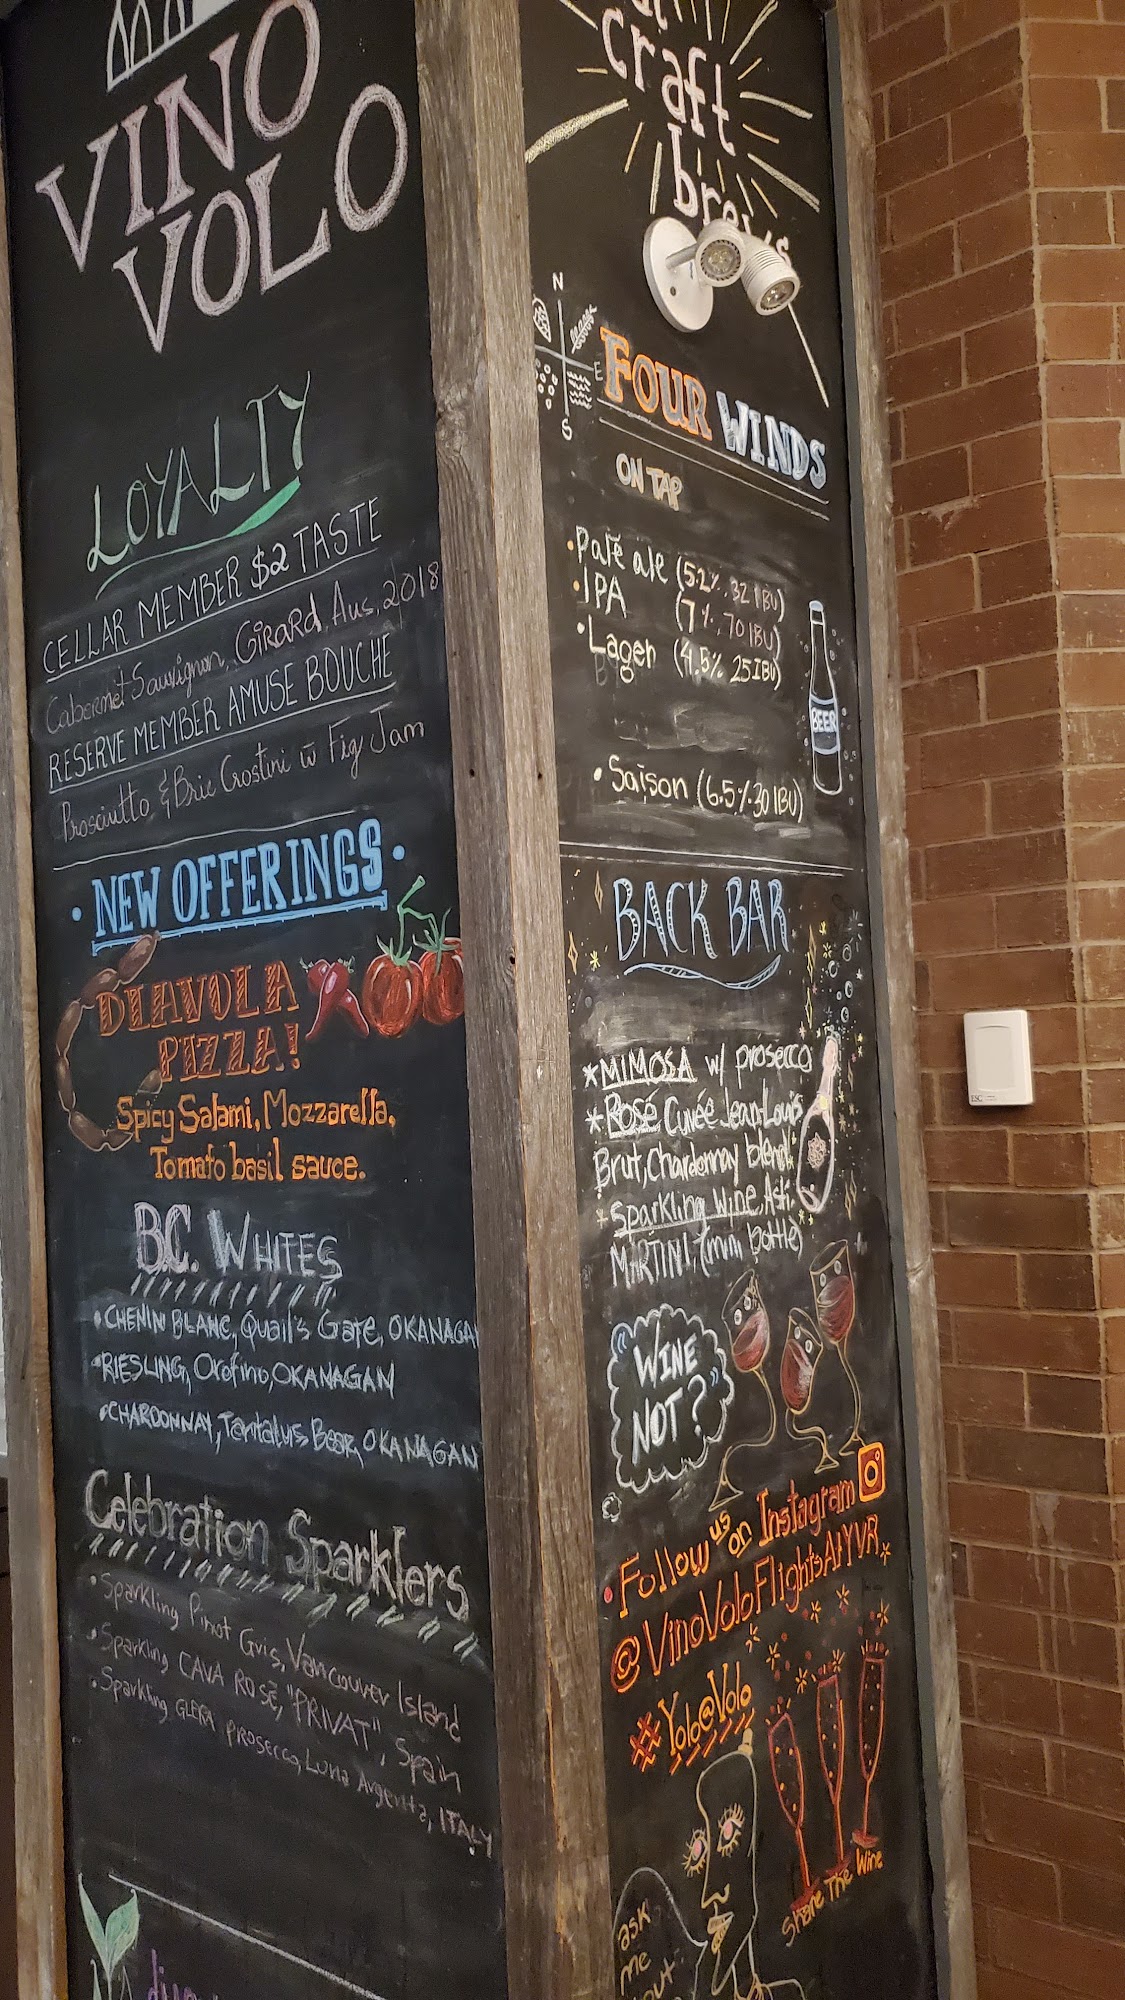 VINO
VOLO
LOYALTY
CELLAR MEMBER $2 TASTE
Cabernet Sauvignon, GIRARD, Aus, 2018
RESERVE MEMBER AMUSE BOUCHE
Prosciutto & Brie Crostini w Fig Jam
• NEW OFFERINGS •
DIAVOLA
PIZZA!
Spicy Salami, Mozzarella,
Tomato basil sauce.
B.C. WHITES
• CHENIN BLANC, Quail's Gate, OKANAGAN
• RIESLING, Orofino, OKANAGAN
• CHARDONNAY, Tantalus Bear, OKANAGAN
Celebration Sparklers
• Sparkling Pinot Gris, Vancouver Island
• Sparkling CAVA ROSÉ, "PRIVAT", Spain
• Sparkling GLERA PROSECCO, Luna Argenta, ITALY
craft
brews
N
E
S
FOUR WINDS
ON TAP
• Pale ale (5.2%, 32 IBU)
• IPA (7%, 70 IBU)
• Lager (4.5% 25 IBU)
BEER
• Saison (6.5% 30 IBU)
BACK BAR
* MIMOSA w/ prosecco
* ROSÉ Cuvée Jean-Louis
Brut, Chardonnay blend
* Sparkling Wine, Asti
MARTINI, (mini bottle)
"WINE
NOT?"
• Follow us on Instagram
@VinoVoloFlightsAtYVR
#Yolo@Volo
Share The Wine
ask
me